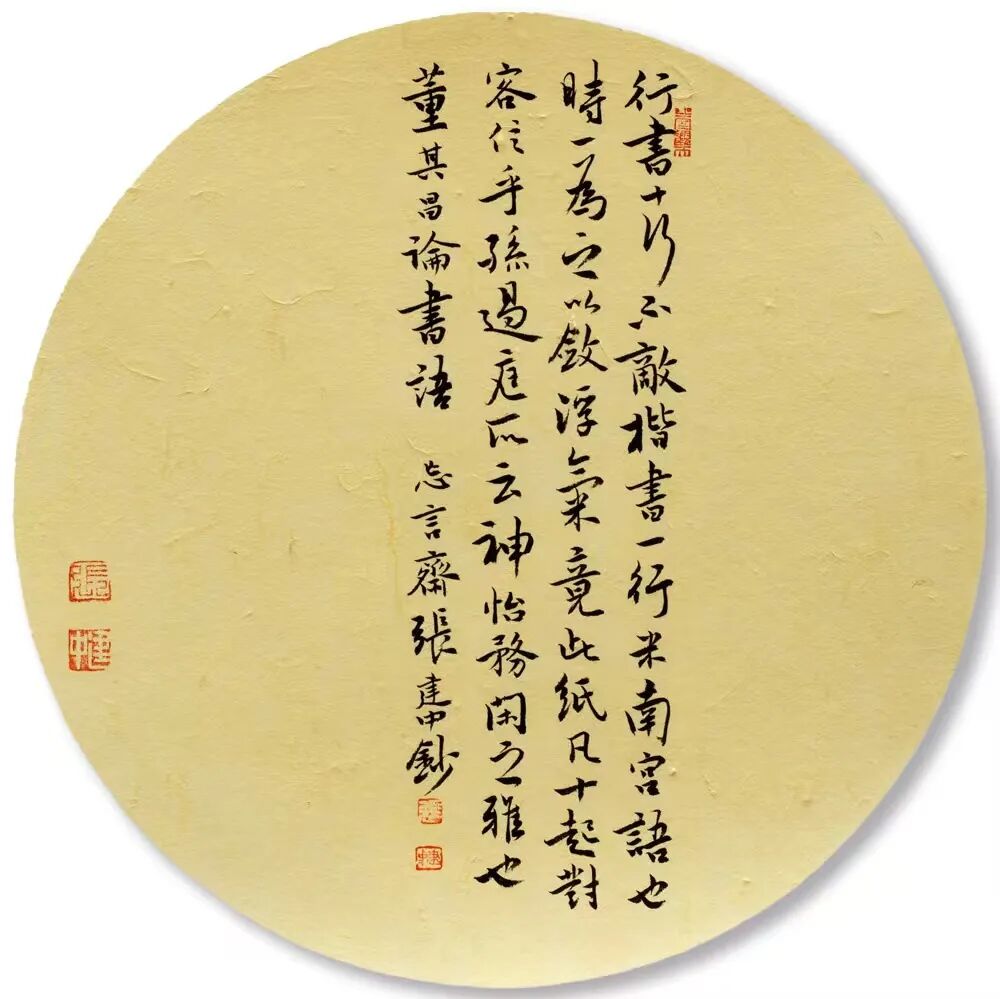 行書十行不敵楷書一行米南宮語也
時一為之以斂浮氣竟此紙凡十起對
客信乎孫過庭所云神怡務閑之難也
董其昌論書語 忘言齋張建中鈔
張